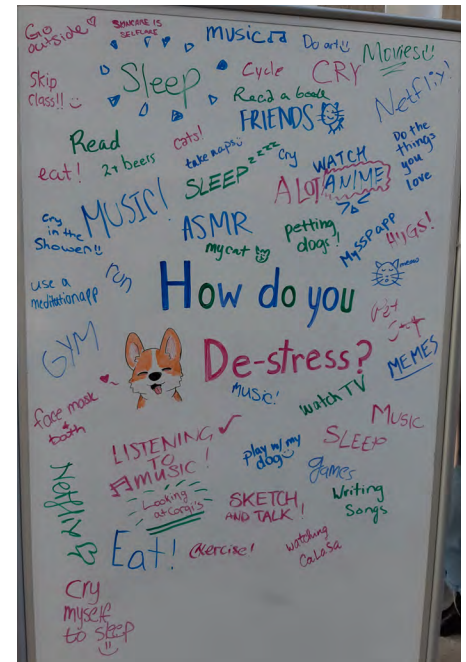 Go
outside
SKINCARE IS
SELFCARE
music
Do art
Movies
Skip
class!!
Sleep
Cycle
CRY
Read a book
Netflix!
FRIENDS
Read
cats!
take naps
eat!
2+ beers
SLEEP zzzz
Cry
WATCH
A LOT ANIME
Do the
things
you
love
cry
in the
Shower
MUSIC!
ASMR
my cat
petting
dogs!
MySSP app
HUGS!
meow
use a
meditation app
run
How do you
De-stress?
GYM
MEMES
face mask
+
bath
Music!
watch TV
Music
SLEEP
LISTENING
TO
MUSIC!
play w/ my
dog
games
Netflix
Looking
at Corgi's
SKETCH
AND TALK!
Writing
Songs
Eat!
exercise!
watching
CaLaSa
Cry
myself
to sleep